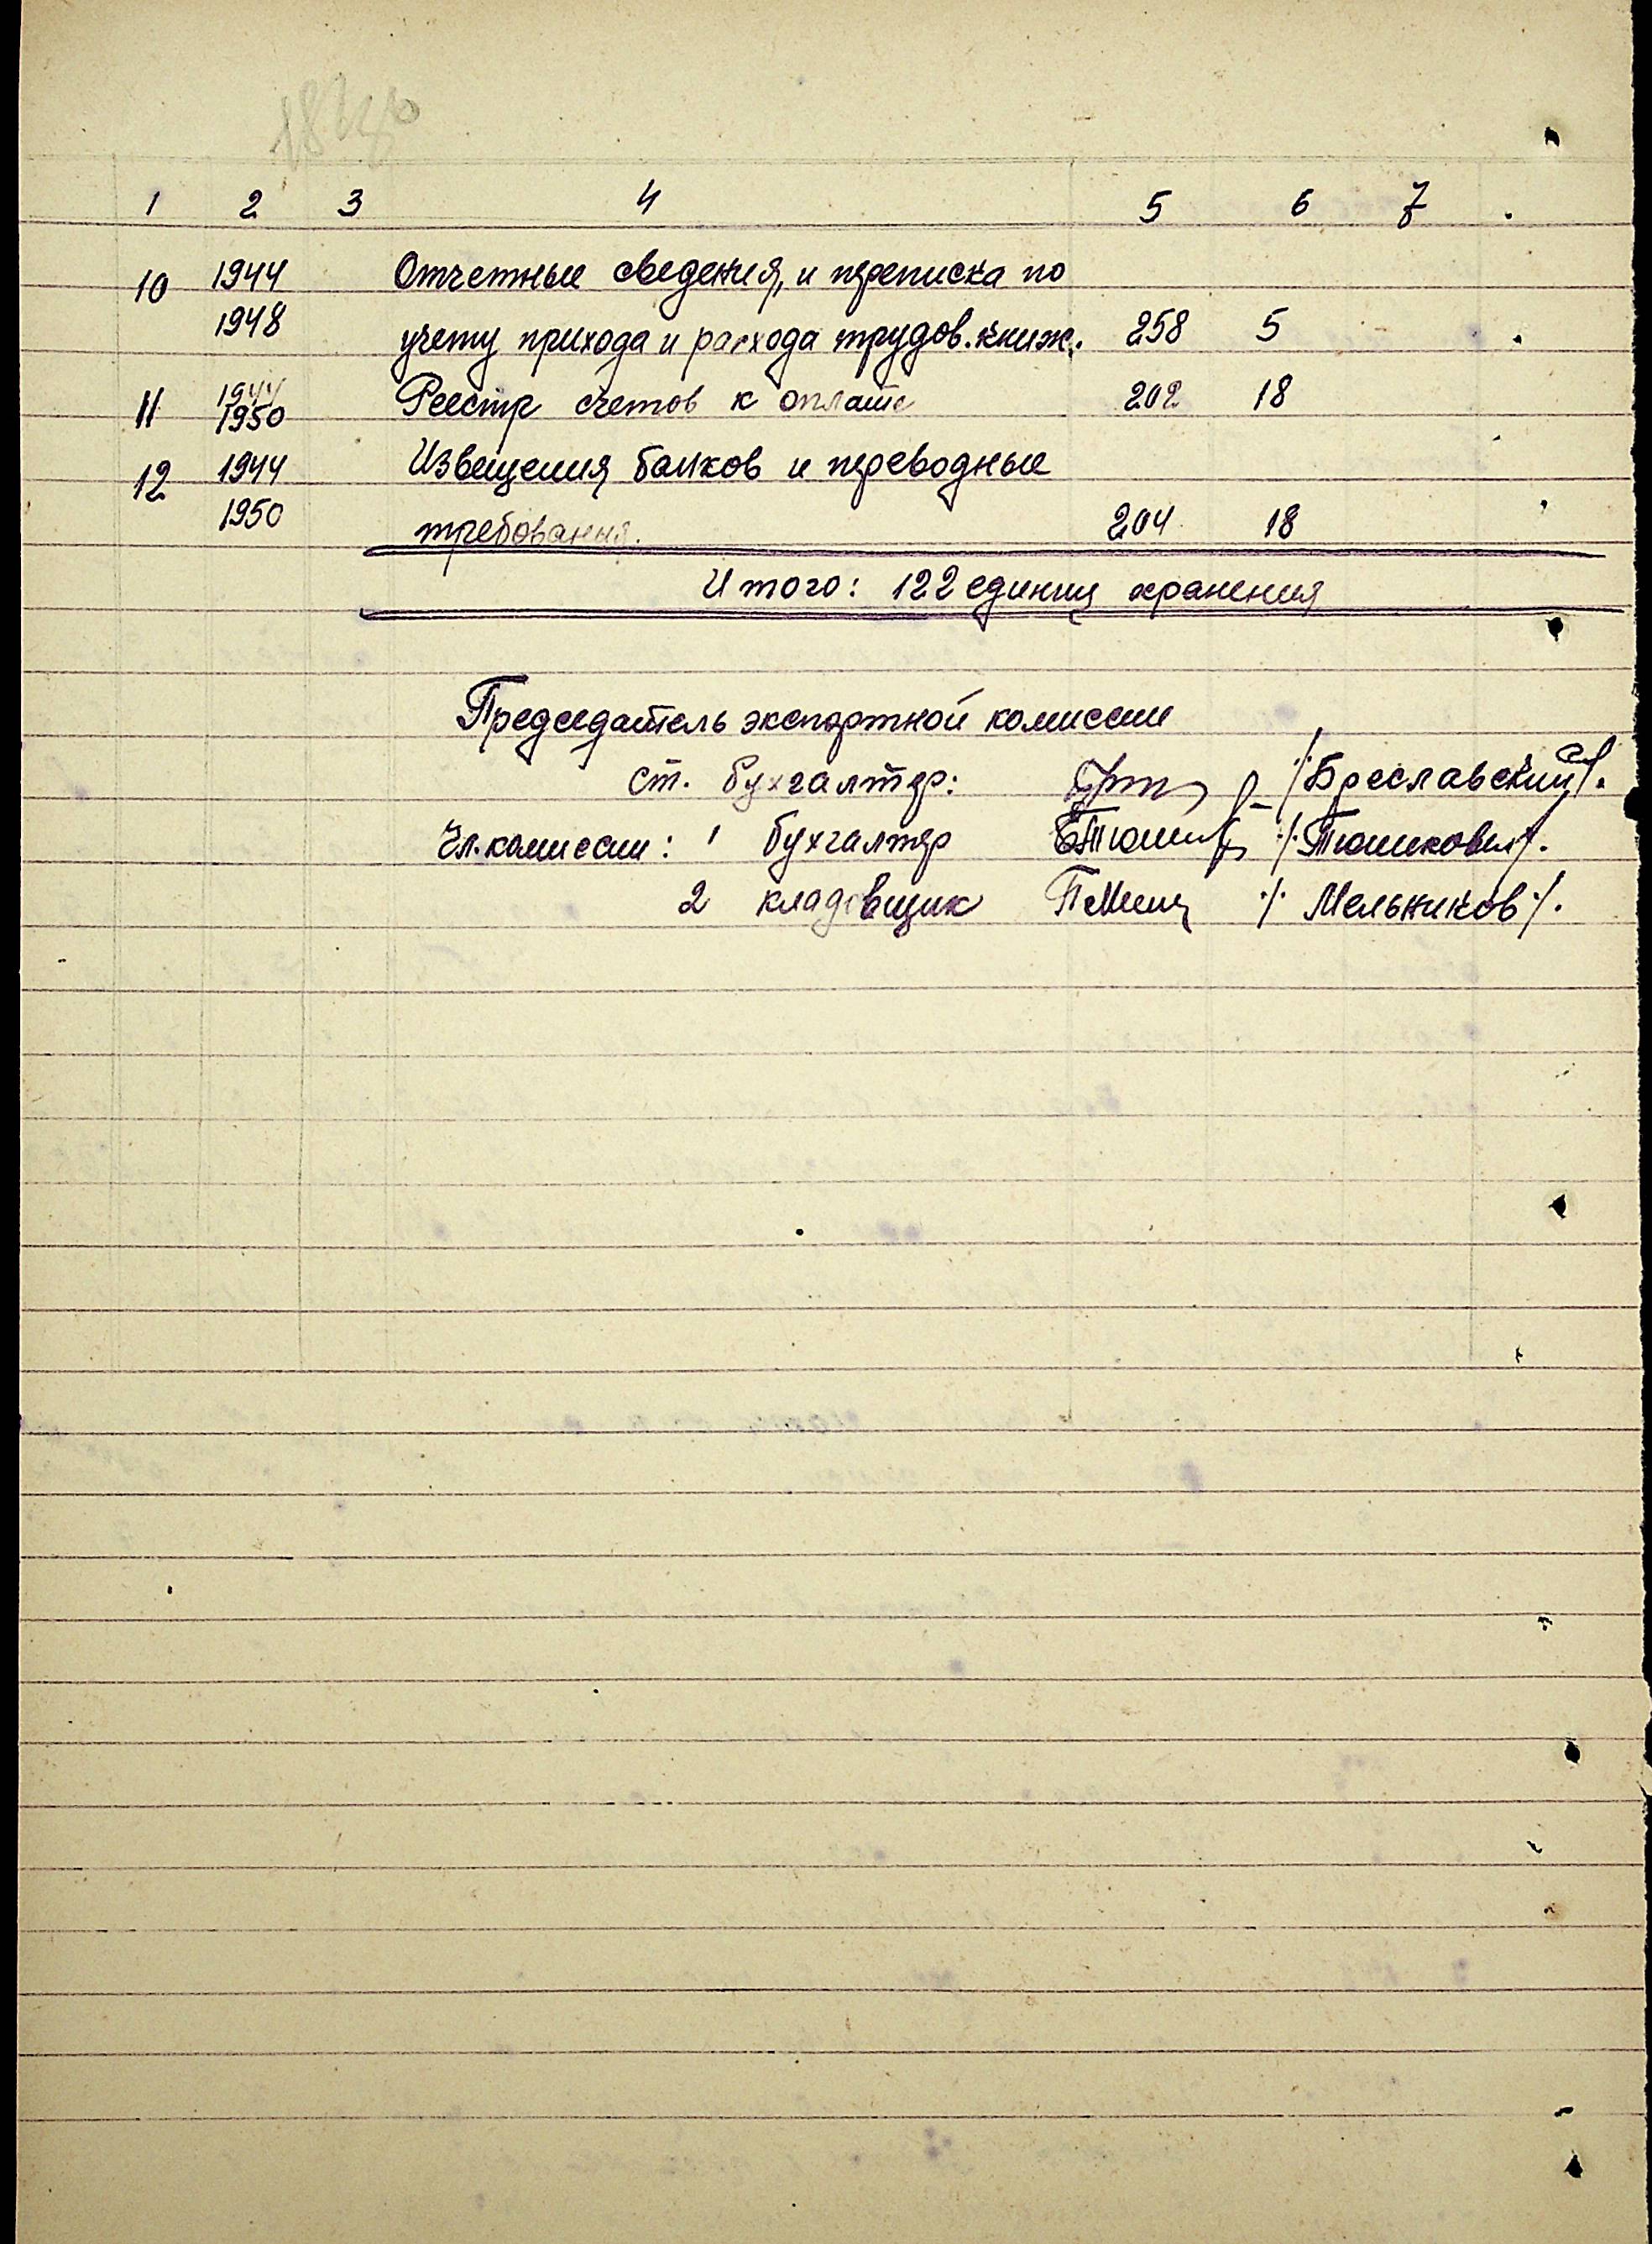 1 2 3 4 5 6 7
10 1944 Отчетные сведения, и переписка по
1948 учету прихода и расхода трудов. книж. 258 5
1944
11 1950 Реестр счетов к оплате 202 18
12 1944 Извещения банков и переводные
1950 требования. 204 18
Итого: 122 единиц хранения
Председатель экспортной комиссии
ст. бухгалтер: /Бреславский/.
Чл. комиссии: 1 бухгалтер /Тюшкевич/.
2 кладовщик /Мельников/.